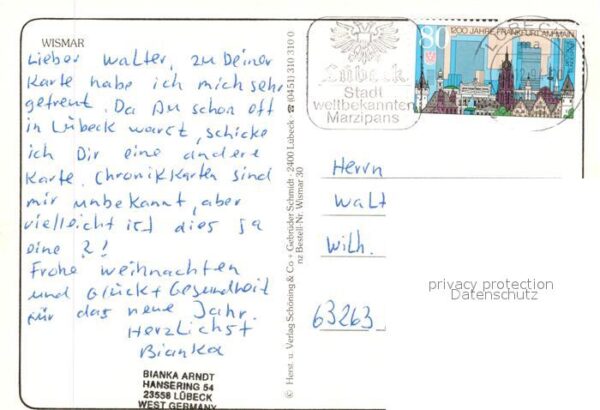 WISMAR
Lieber Walter, zu Deiner
Karte habe ich mich sehr
gefreut. Da Du schon oft
in Lübeck warst, schicke
ich Dir eine andere
Karte. Chronikkarten sind
mir unbekannt, aber
vielleicht ist dies ja
eine ?!
Frohe Weihnachten
und Glück + Gesundheit
für das neue Jahr.
Herzlichst
Bianka
BIANKA ARNDT
HANSERING 54
23558 LÜBECK
WEST GERMANY
© Herst. u. Verlag Schöning & Co + Gebrüder Schmidt · 2400 Lübeck · ☎ (0451) 310 310 0
nz Bestell-Nr. Wismar 30
Lübeck
Stadt
weltbekannten
Marzipans
80
1200 JAHRE FRANKFURT AM MAIN
LÜBECK
Herrn
Walt
Wilh.
63263
privacy protection
Datenschutz